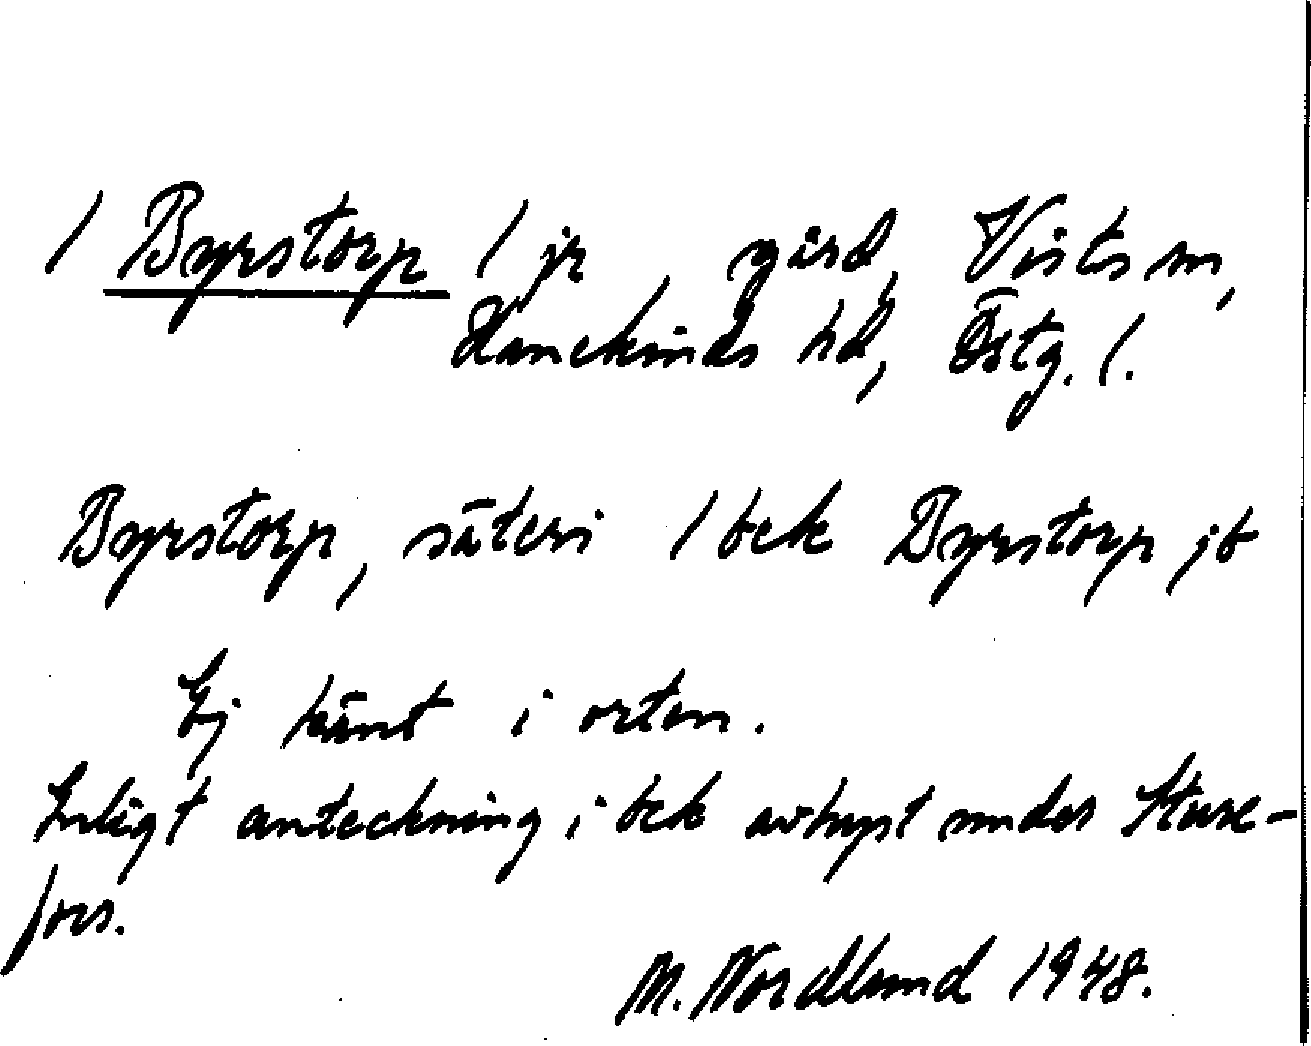 / Byrstorp / jr , gård, Vists sn,
Hanekinds hd, Östg. l.
Byrstorp, säteri 1 bek Byrstorp jb
Ej känt i orten.
Enligt anteckning i bek avhyst under Sture-
fors.
M. Nordlund 1948.